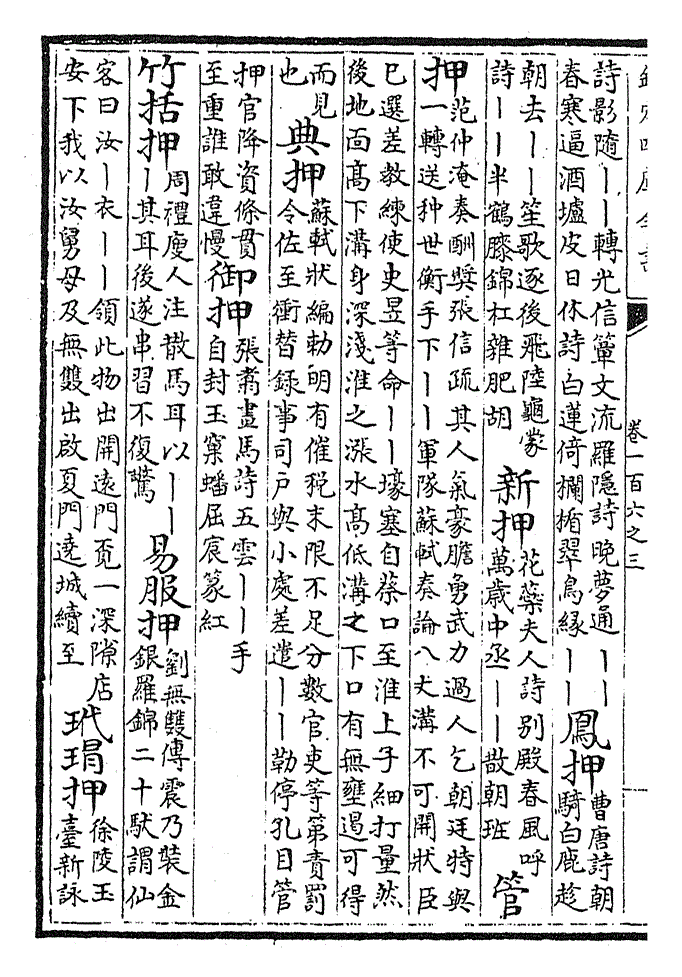 卷一百六之三
詩影隨丨丨轉光信簟文流羅隱詩晚夢通丨丨
春寒逼酒壚皮日休詩白蓮倚攔楯翠鳥緣丨丨
鳳押
曹唐詩朝
騎白鹿趁
朝去丨丨笙歌逐後飛陸龜蒙
詩丨丨半鶴膝錦杠雜肥胡
新押
花蘂夫人詩别殿春風呼
萬歲中丞丨丨散朝班
管
押
范仲淹奏酬奬張信疏其人氣豪膽勇武力過人乞朝廷特與
一轉送狆世衡手下丨丨軍隊蘇軾奏論八丈溝不可開狀臣
已選差教練使史昱等命丨丨壕塞自蔡口至淮上子細打量然
後地面高下溝身深淺淮之漲水高低溝之下口有無壅遏可得
而見
也
典押
蘇軾狀編勅明有催税末限不足分數官吏等第責罰
令佐至衝替録事司户與小處差遣丨丨勒停孔目管
押官降資條貫
至重誰敢違慢
御押
張翥畫馬詩五雲丨丨手
自封玉窠蟠屈宸篆紅
竹括押
周禮廋人注散馬耳以丨丨
丨其耳後遂串習不復驚
易服押
劉無雙傳震乃裝金
銀羅錦二十馱謂仙
客曰汝丨衣丨丨領此物出開遠門覓一深隙店
安下我以汝舅母及無雙出啟夏門遶城續至
玳瑁押
徐陵玉
臺新詠